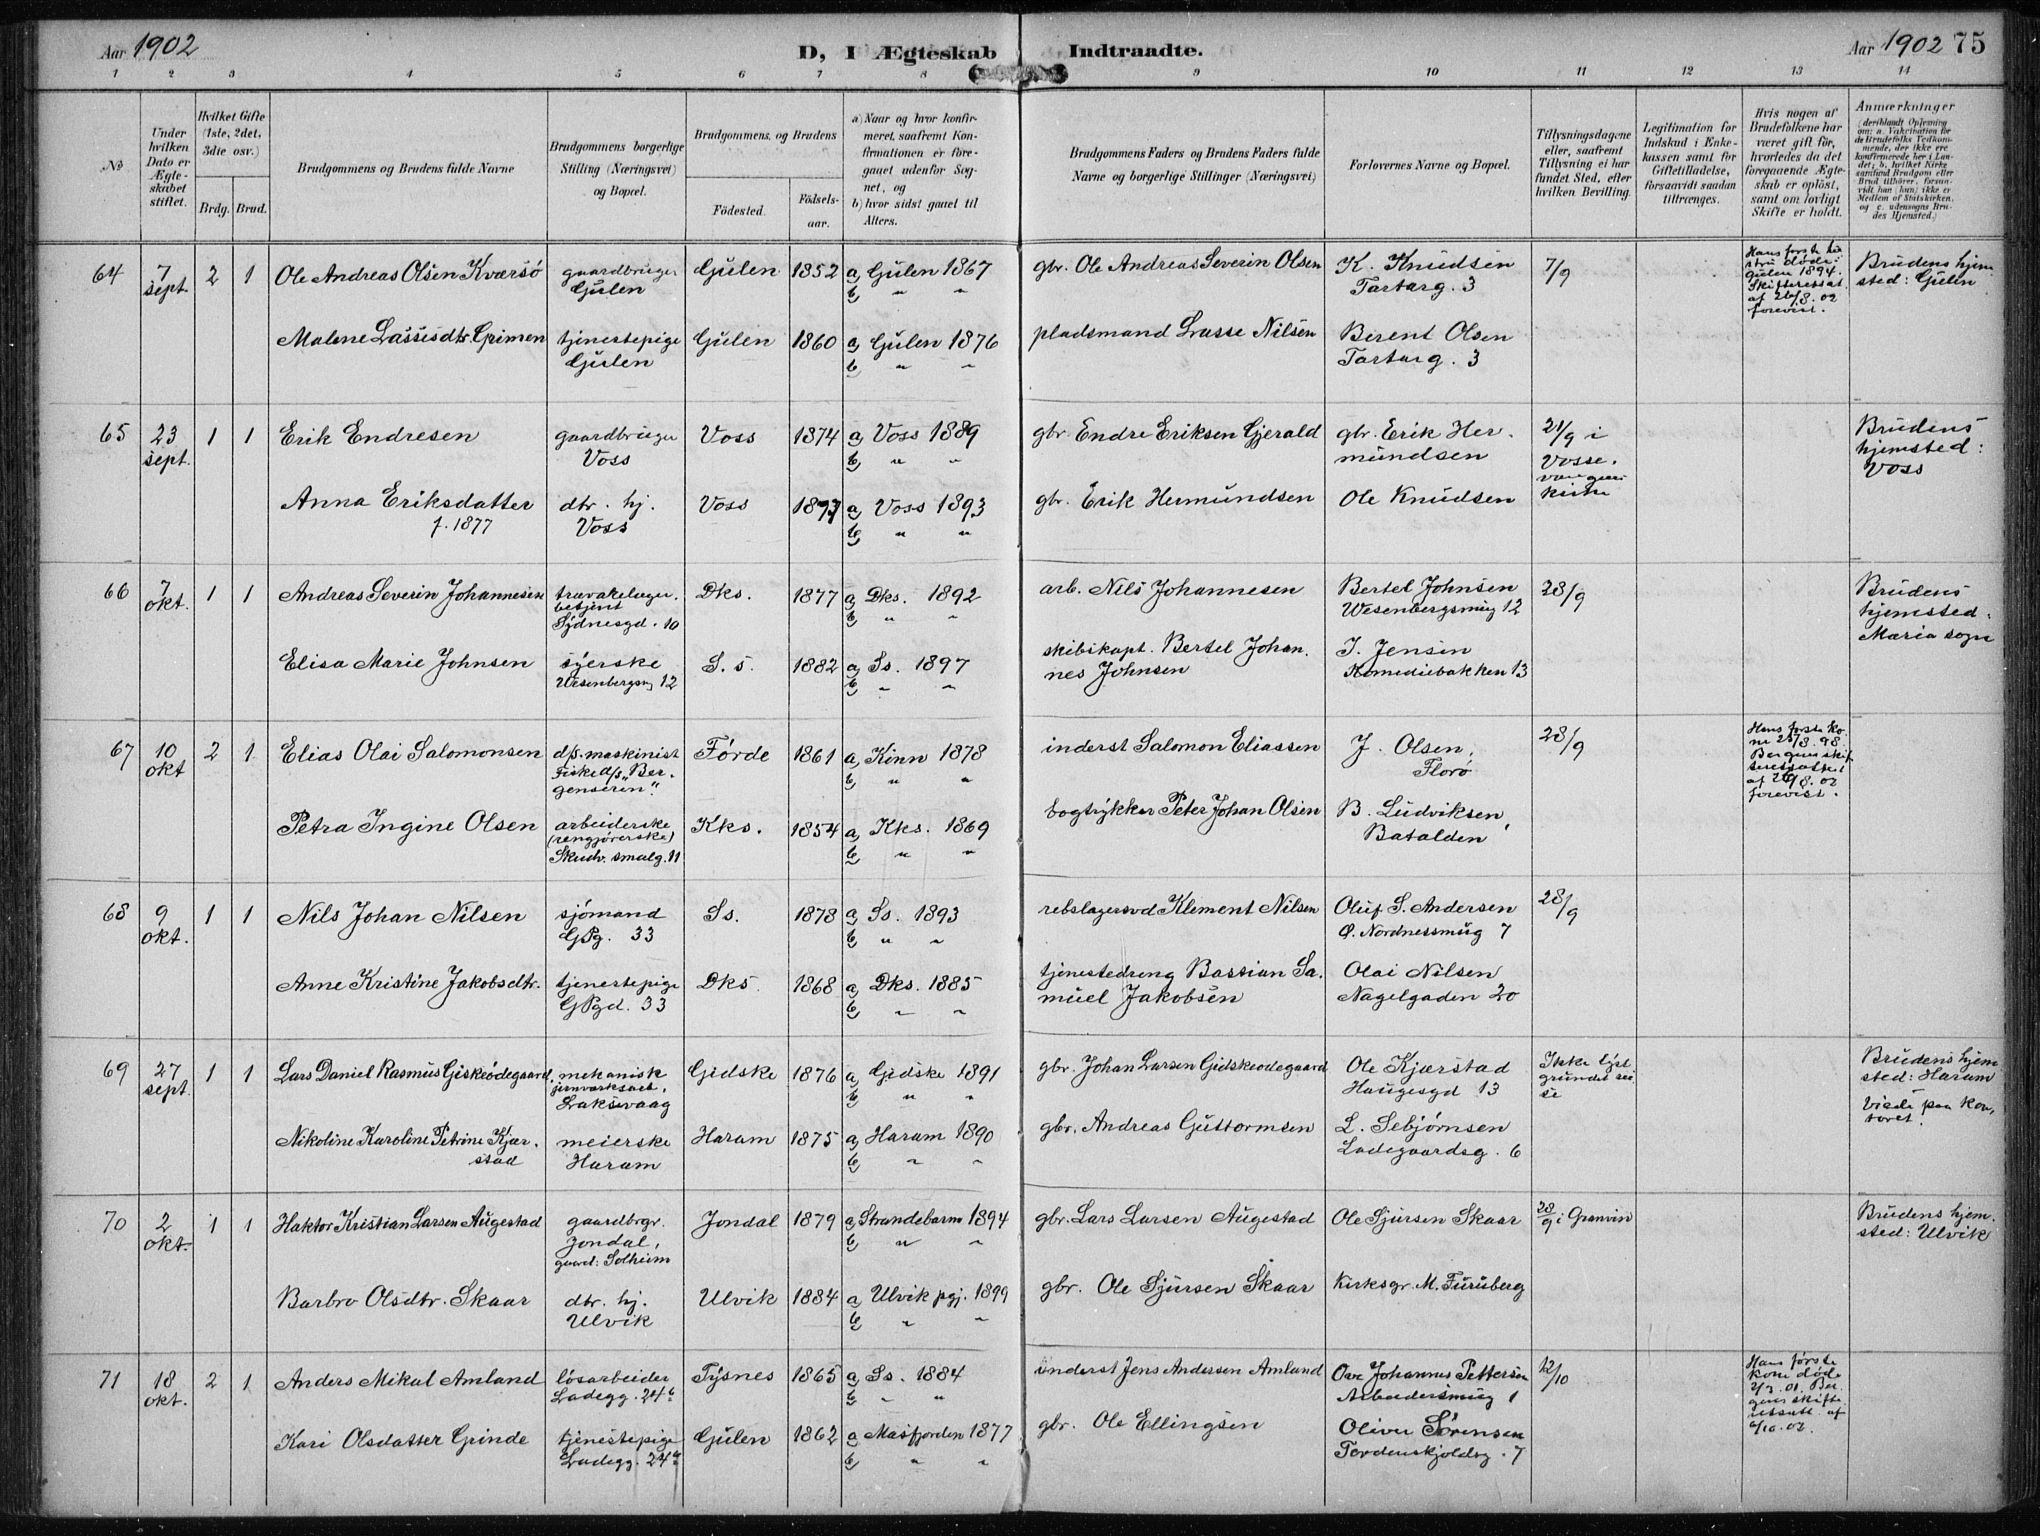 Aar 1902
D, I Ægteskab Indtraadte.
Aar 1902 75
1 2 3 4 5 6 7 8 9 10 11 12 13 14
No
Under hvilken Dato er Ægteskabet stiftet.
Hvilket Gifte (1ste, 2det, 3die osv.)
Brdg. Brud.
Brudgommens og Brudens fulde Navne
Brudgommens borgerlige Stilling (Næringsvei) og Bopæl.
Brudgommens, og Brudens
Fødested. Fødsels-aar.
a) Naar og hvor konfirmeret, saafremt Konfirmationen er foregaaet udenfor Sognet, og
b) hvor sidst gaaet til Alters.
Brudgommens Faders og Brudens Faders fulde Navne og borgerlige Stillinger (Næringsvei)
Forlovernes Navne og Bopæl.
Tillysningsdagene eller, saafremt Tillysning ei har fundet Sted, efter hvilken Bevilling.
Legitimation for Indskud i Enkekassen samt for Giftetilladelse, forsaavidt saadan tiltrænges.
Hvis nogen af Brudefolkene har været gift før, hvorledes da det foregaaende Ægteskab er opløst, samt om lovligt Skifte er holdt.
Anmærkninger
(deriblandt Oplysning om: a. Vakcination for de Brudefolks Vedkommende, der ikke ere konfirmerede her i Landet; b. hvilket Kirkesamfund Brudgom eller Brud tilhører, forsaavidt han (hun) ikke er Medlem af Statskirken, og c. udensogns Brudes Hjemsted.)
64 7 sept. 2 1 Ole Andreas Olsen Kværsø gaardbruger Gulen Gulen 1852 a, Gulen 1867 b, " " gbr. Ole Andreas Severin Olsen K. Knudsen Tartarg. 3 7/9 Hans første hustru døde i Gulen 1894. Skifteattest af 26/8.02 forevist. Brudens hjemsted: Gulen
Malene Lassesdtr. Grimen tjenestepige Gulen Gulen 1860 a, Gulen 1876 b, " " pladsmand Lasse Nilsen Berent Olsen Tartarg. 3
65 23 sept. 1 1 Erik Endresen gaardbruger Voss Voss 1874 a, Voss 1889 b, " " gbr. Endre Eriksen Gjerald gbr. Erik Hermundsen 21/9 i Vossevangens kirke Brudens hjemsted: Voss
Anna Eriksdatter f. 1877 dtr. hj. Voss Voss 1877 a, Voss 1893 b, " " gbr. Erik Hermundsen Ole Knudsen
66 7 okt. 1 1 Andreas Severin Johannesen betjent Sydnesgd. 10 Dks. 1877 a, Dks. 1892 b, " " arb. Nils Johannesen Bertel Johnsen Wesenbergsmug 12 28/9 Brudens hjemsted. Maria sogn
Elisa Marie Johnsen syerske Wesenbergsm 12 S. s. 1882 a, Ss. 1897 b, " " skibskapt. Bertel Johannes Johnsen J. Jensen Komediebakken 13
67 10 okt 2 1 Elias Olai Salomonsen d/s. maskinist Fisked/s „Bergenseren". Førde 1861 a, Kinn 1878 b, " " inderst Salomon Eliassen J. Olsen, Florø 28/9 Hans første kone 25/8.98. Bergens skifteretsattest af 26/8.02 forevist.
Petra Ingine Olsen arbeiderske (rengjørerske) Skudv. smalg. 11 Kks. 1854 a, Kks. 1869 b, " " bogtrykker Peter Johan Olsen B. Ludviksen, Batalden
68 9 okt. 1 1 Nils Johan Nilsen sjømand GPg. 33 Ss. 1878 a, Ss. 1893 b, " " rebslagersvd Klement Nilsen Oluf S. Andersen Ø. Nordnessmug 7 28/9
Anne Kristine Jakobsdtr. tjenestepige GPgd. 33 Dks. 1868 a, Dks. 1885 b, " " tjenestedreng Bastian Samuel Jakobsen Olai Nilsen Nagelgaden 20
69 27 sept. 1 1 Lars Daniel Rasmus Giskeødegaard mekanisk Laksevaag Gidske 1876 a, Gidske 1891 b, " " gbr. Johan Larsen Gidskeødegaard Ole Kjærstad Haugesgd 13 Ikke lyst Brudens hjemsted: Haram Viede paa kontoret.
Nikoline Karoline Petrine Kjærstad meierske Haram Haram 1875 a, Haram 1890 b, " " gbr. Andreas Guttormsen L. Sebjørnsen Ladegaardsg. 6
70 2 okt. 1 1 Haktor Kristian Larsen Augestad gaardbrgr. Jondal, gaard: Solheim Jondal 1879 a, Strandebarm 1894 b, " " gbr. Lars Larsen Augestad Ole Sjursen Skaar 28/9 i Granvin Brudens hjemsted: Ulvik
Barbro Olsdtr. Skaar dtr. hj. Ulvik Ulvik 1884 a, Ulvik pgj. 1899 b, " " gbr. Ole Sjursen Skaar Kirksgr. M. Furuberg
71 18 okt. 2 1 Anders Mikal Amland løsarbeider Ladegg. 24a Tysnes 1865 a, Ss. 1884 b, " " inderst Jens Andersen Amland Ove Johannes Pettersen Arbeidersmug 1 12/10 Hans første kone døde 2/3.01. Bergens skifteretsatt. af 6/10.02.
Kari Olsdatter Grinde tjenestepige Ladegg. 24a Gulen 1862 a, Masfjorden 1877 b, " " gbr. Ole Ellingsen Oliver Sørensen Tordenskjoldsg. 7